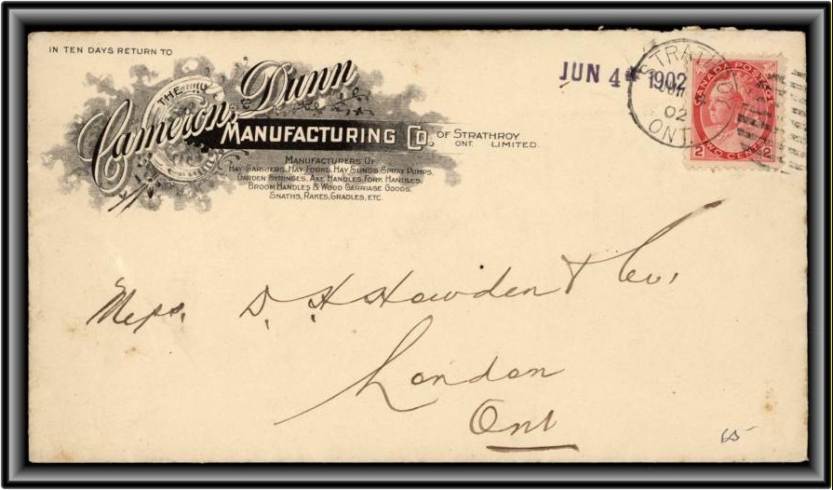 IN TEN DAYS RETURN TO
THE
Cameron, Dunn
MANUFACTURING CO. OF STRATHROY
ONT. LIMITED.
MANUFACTURERS OF
HAY CARRIERS, HAY FORKS, HAY SLINGS, SPRAY PUMPS,
GARDEN SYRINGES, AXE HANDLES, FORK HANDLES,
BROOM HANDLES & WOOD CARRIAGE GOODS,
SNATHS, RAKES, CRADLES, ETC.
JUN 4 1902
STRATH
4
02
ONT.
CANADA POSTAGE
2 TWO CENTS 2
Mess. D. H. Howden & Co.
London
Ont
65